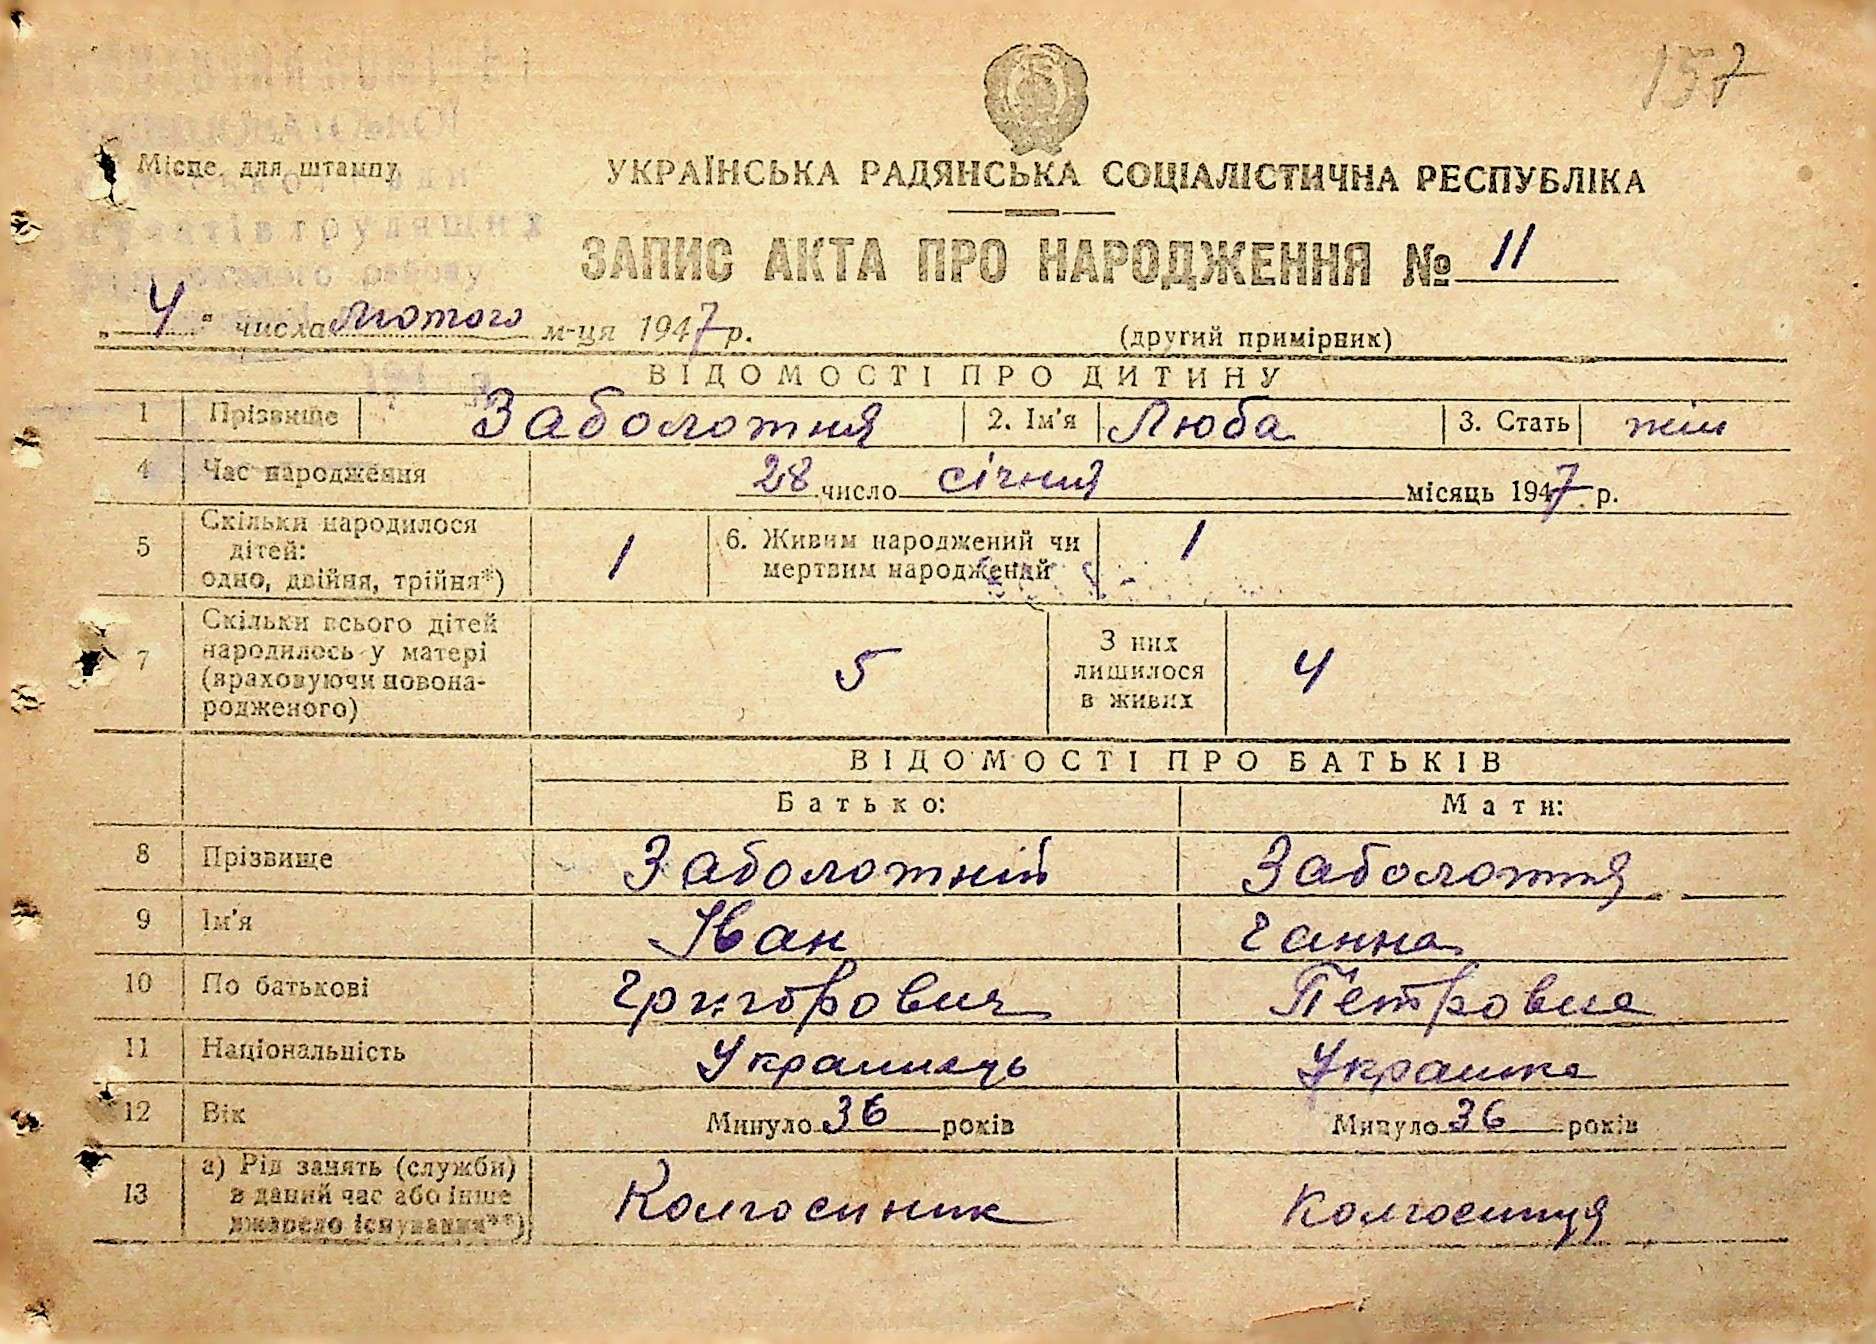 157
Місце для штампу
УКРАЇНСЬКА РАДЯНСЬКА СОЦІАЛІСТИЧНА РЕСПУБЛІКА
трудящих
району
ЗАПИС АКТА ПРО НАРОДЖЕННЯ № 11
„4" числа лютого м-ця 1947 р.
(другий примірник)
ВІДОМОСТІ ПРО ДИТИНУ
1 Прізвище Заболотня 2. Ім'я Люба 3. Стать жін
4 Час народження 28 число січня місяць 1947 р.
5 Скільки народилося дітей: одно, двійня, трійня*) 1 6. Живим народжений чи мертвим народжений 1
7 Скільки всього дітей народилось у матері (враховуючи новонародженого) 5 З них лишилося в живих 4
ВІДОМОСТІ ПРО БАТЬКІВ
Батько: Мати:
8 Прізвище Заболотній Заболотня
9 Ім'я Іван Ганна
10 По батькові Григорович Петровна
11 Національність Українець Українка
12 Вік Минуло 36 років Минуло 36 років
13 а) Рід занять (служби) в даний час або інше джерело існування**) Колгоспник Колгоспниця